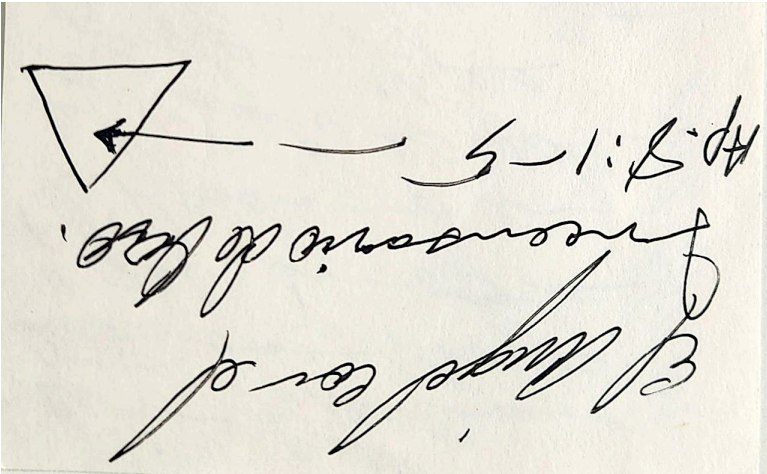 El Angel con el
Incensario de
Ap. 8:1-5